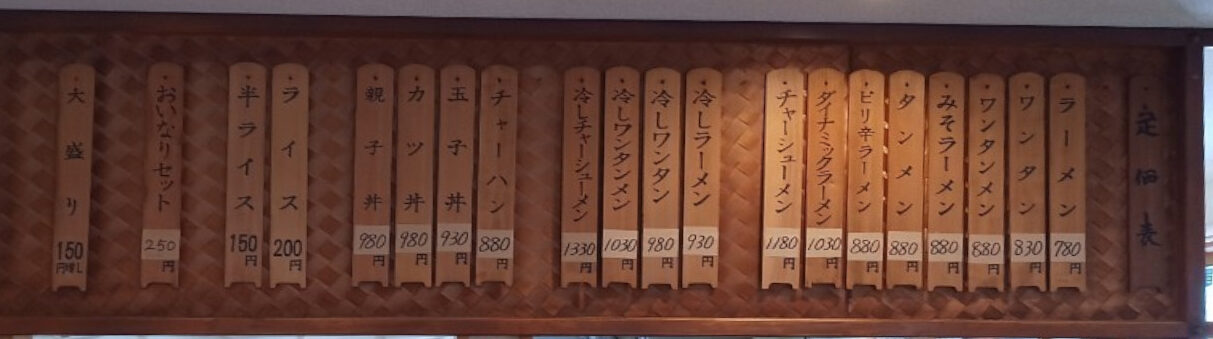 定価表
ラーメン 780円
ワンタン 830円
ワンタンメン 880円
みそラーメン 880円
タンメン 880円
ピリ辛ラーメン 880円
ダイナミックラーメン 1030円
チャーシューメン 1180円
冷しラーメン 930円
冷しワンタン 980円
冷しワンタンメン 1030円
冷しチャーシューメン 1330円
チャーハン 880円
玉子丼 930円
カツ丼 980円
親子丼 980円
ライス 200円
半ライス 150円
おいなりセット 250円
大盛り 150円増し